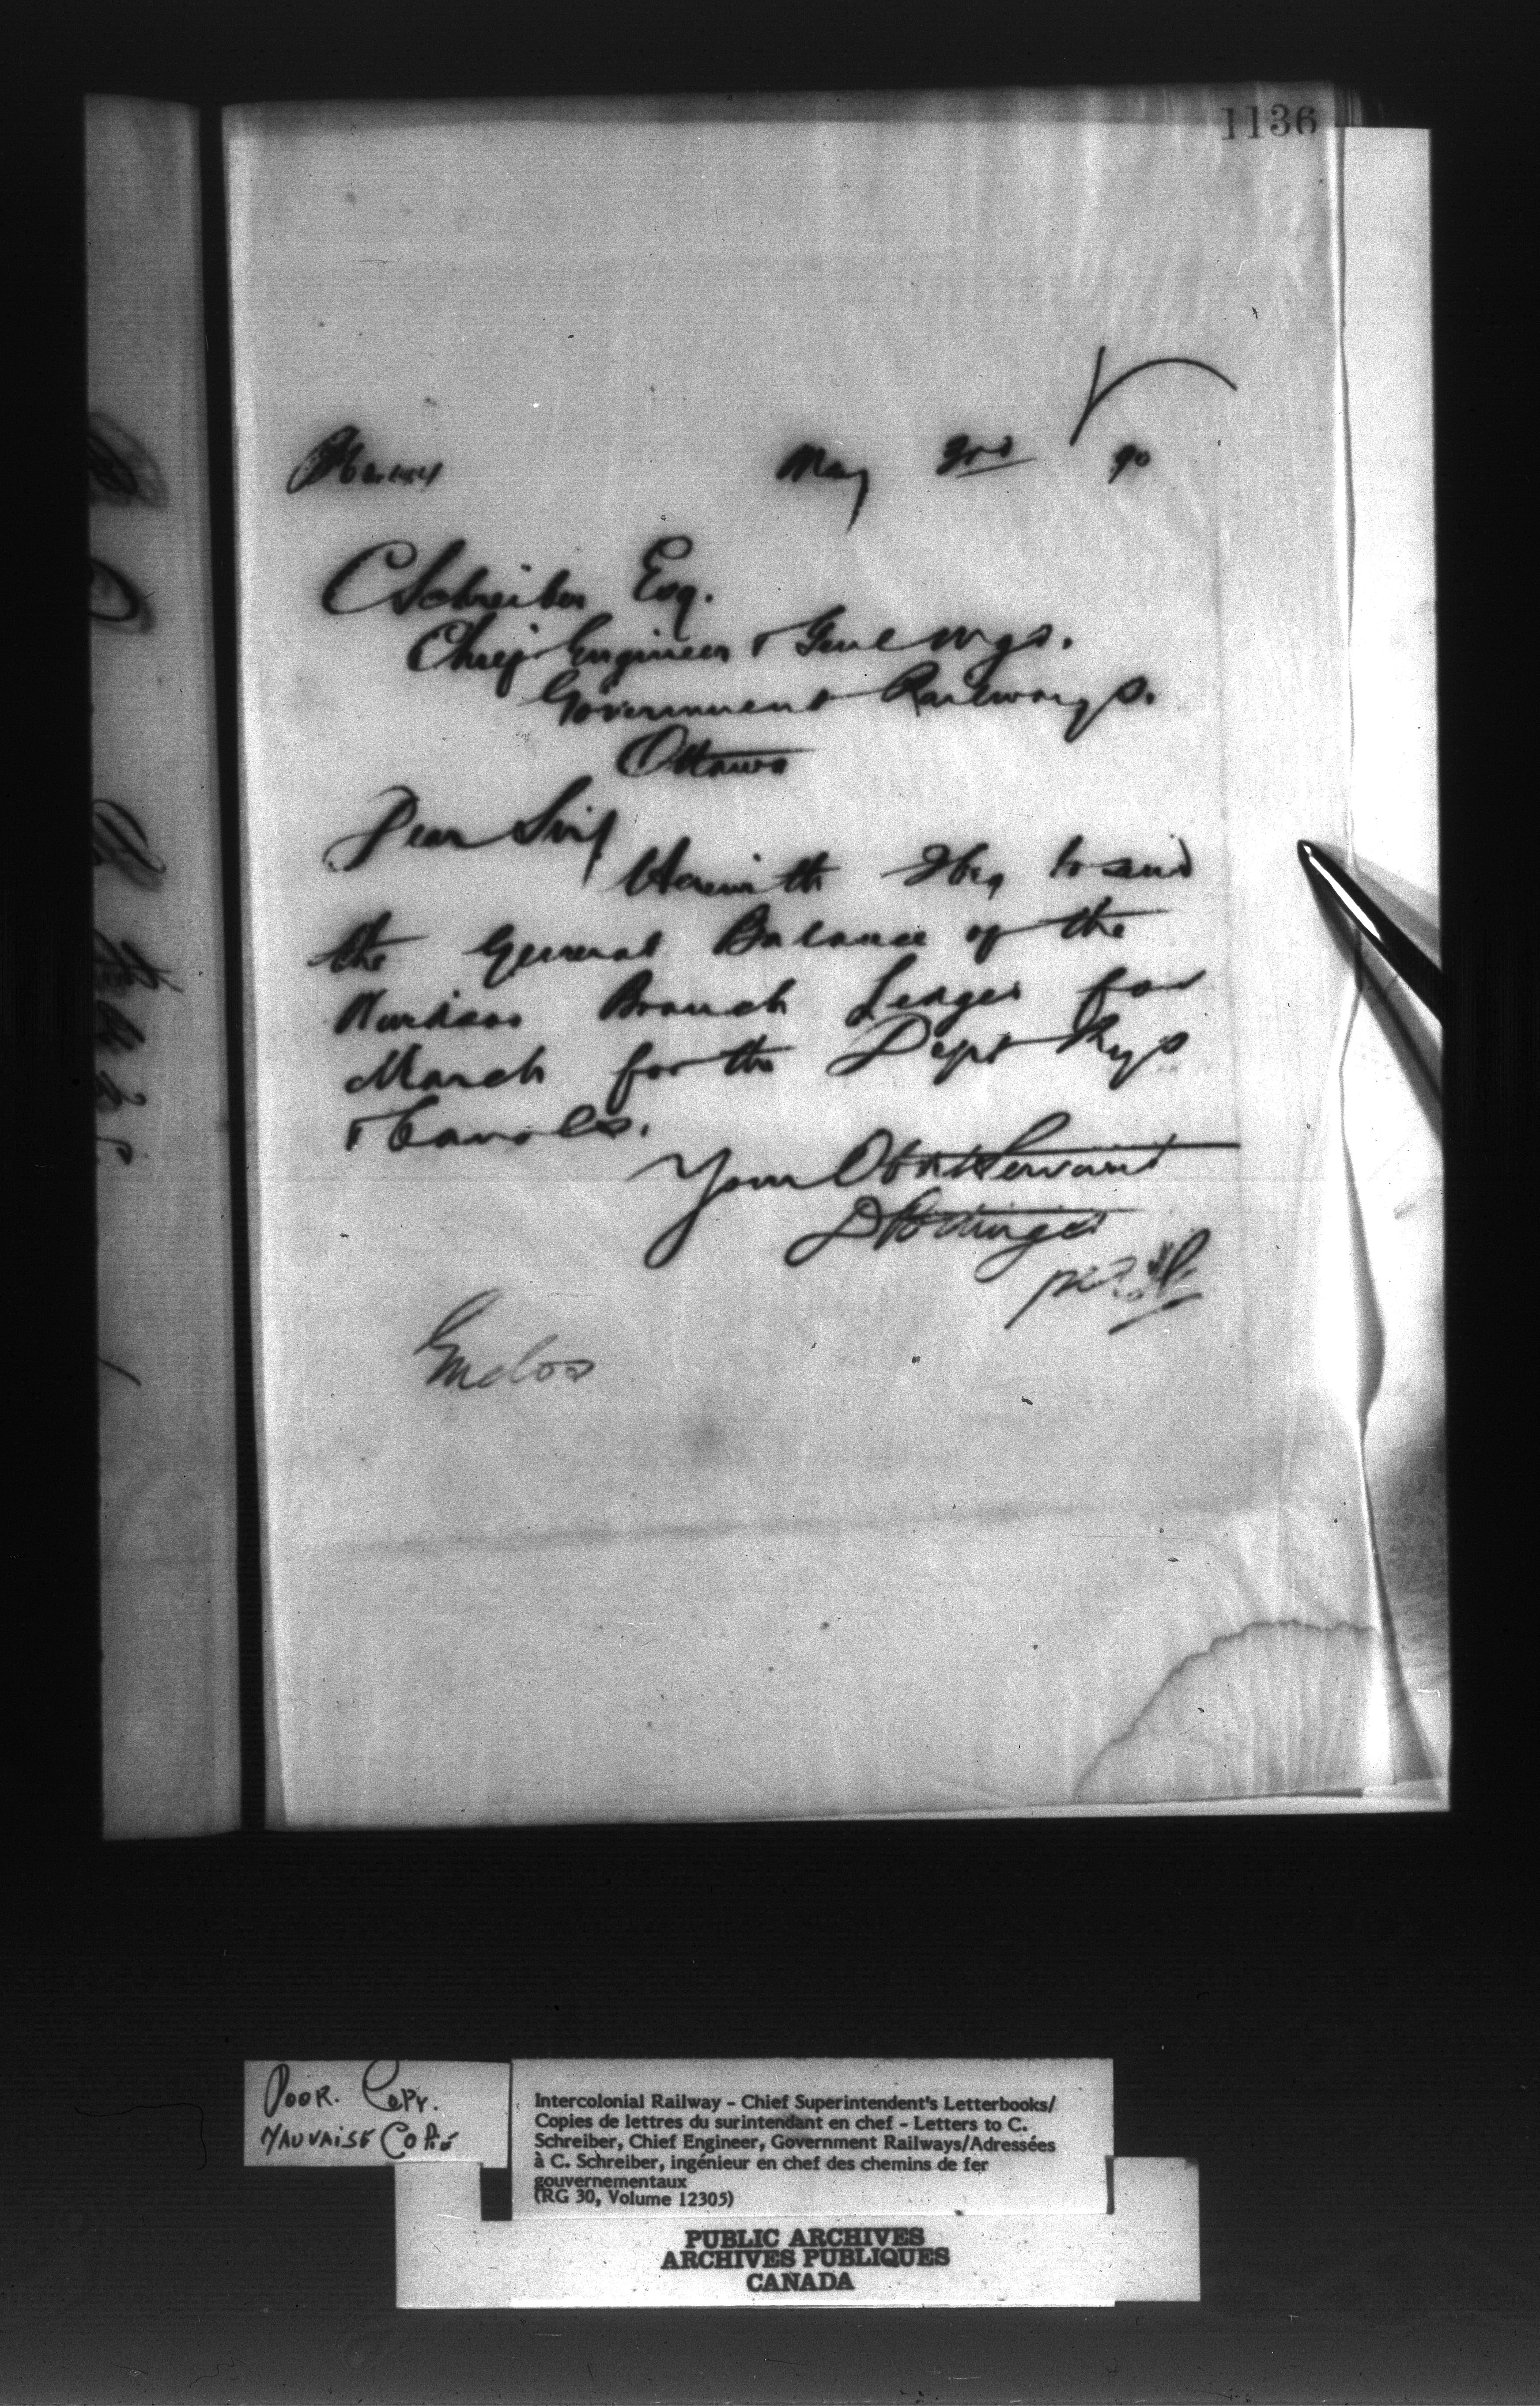 1136
May 3rd 90
C Schreiber Esq.
Chief Engineer & Genl Mgr.
Government Railways.
Ottawa
Dear Sir
Herewith I beg to send
the General Balance of the
Windsor Branch Ledger for
March for the Dept Rys
& Canals.
Your Obdt Servant
D Pottinger
per
Enclos
POOR. COPY.
MAUVAISE COPIE
Intercolonial Railway – Chief Superintendent's Letterbooks/
Copies de lettres du surintendant en chef – Letters to C.
Schreiber, Chief Engineer, Government Railways/Adressées
à C. Schreiber, ingénieur en chef des chemins de fer
gouvernementaux
(RG 30, Volume 12305)
PUBLIC ARCHIVES
ARCHIVES PUBLIQUES
CANADA